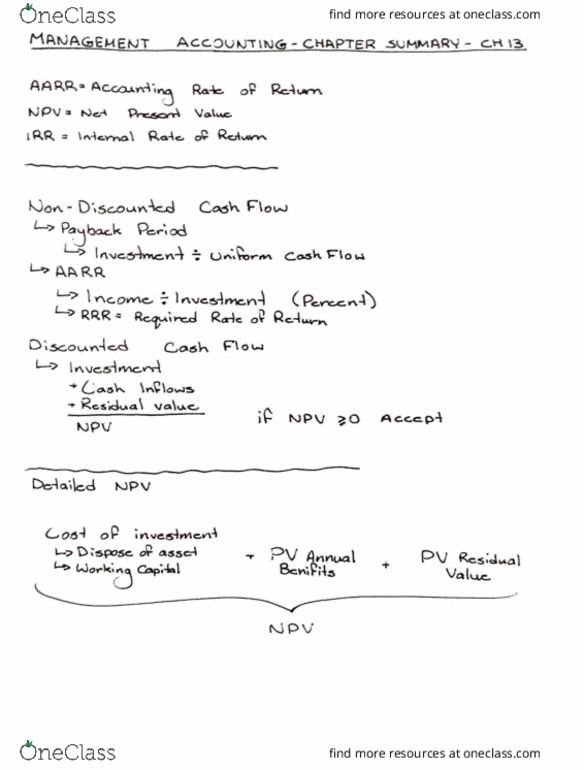 OneClass
find more resources at oneclass.com
MANAGEMENT ACCOUNTING - CHAPTER SUMMARY - CH 13
AARR = Accounting Rate of Return
NPV = Net Present Value
IRR = Internal Rate of Return
Non-Discounted Cash Flow
↳ Payback Period
↳ Investment ÷ Uniform Cash Flow
↳ AARR
↳ Income ÷ Investment (Percent)
↳ RRR = Required Rate of Return
Discounted Cash Flow
↳ Investment
+ Cash Inflows
+ Residual value
NPV
if NPV ≥ 0 Accept
Detailed NPV
Cost of investment
↳ Dispose of asset
↳ Working Capital
+ PV Annual
Benifits
+ PV Residual
Value
NPV
OneClass
find more resources at oneclass.com